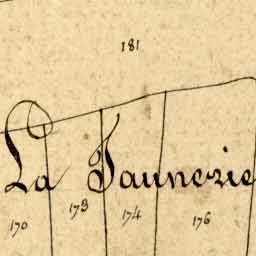 181
La Jaunerie
170 173 174 176